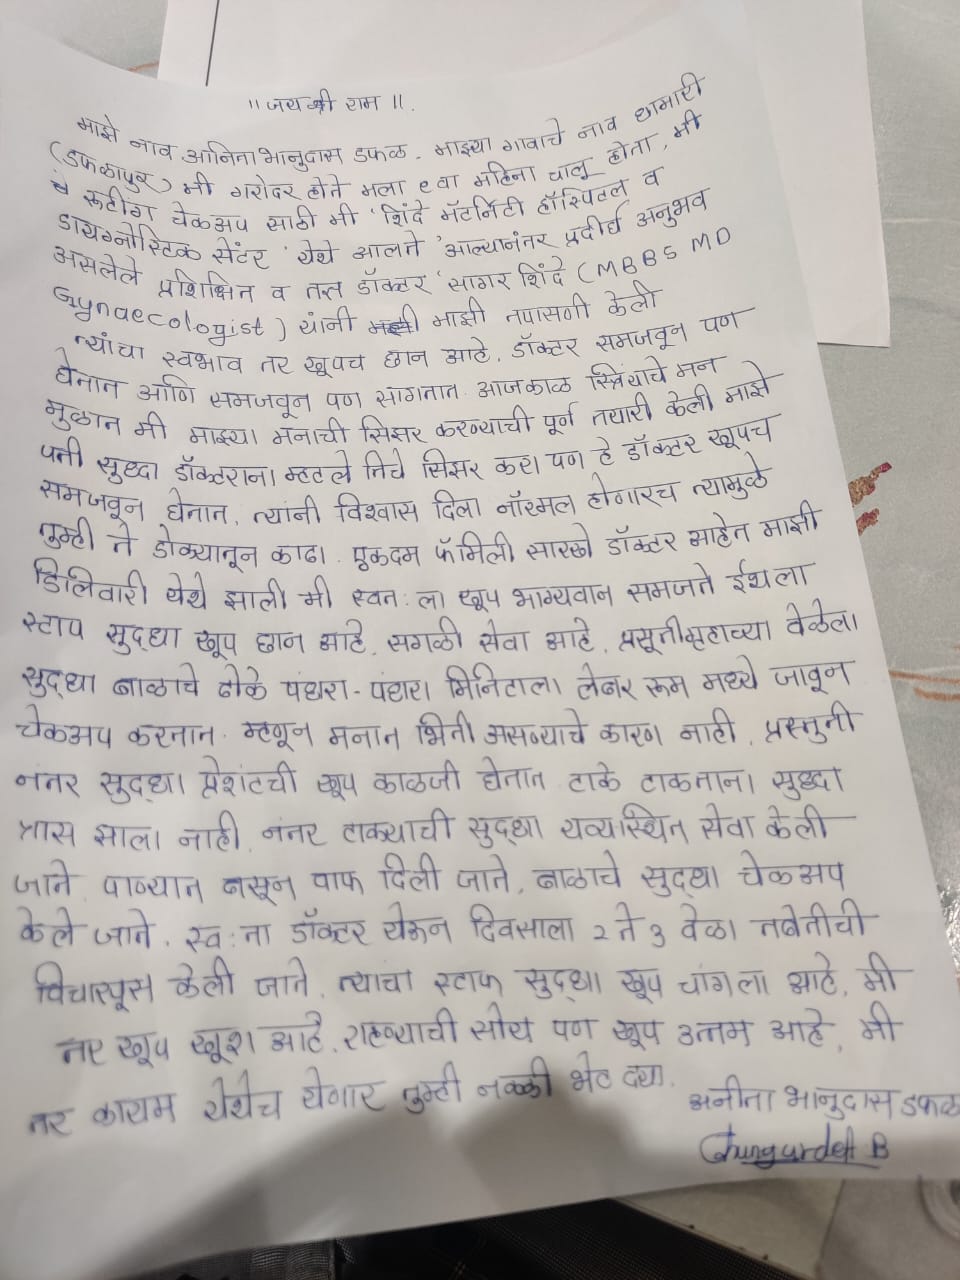 ॥ जय श्री राम ॥.
माझे नाव अनिता भानुदास डफळ. माझ्या गावाचे नाव धामारी
(डफळापुर) मी गरोदर होते मला ९वा महिना चालू होता, मी
रूटींग चेकअप साठी मी 'शिंदे मॅटर्निटी हॉस्पिटल व
डायग्नोस्टिक सेंटर' येथे आलते 'आल्यानंतर प्रदीर्घ अनुभव
असलेले प्रशिक्षित व तज्ञ डॉक्टर 'सागर शिंदे (MBBS MD
Gynaecologist) यांनी माझी तपासणी केली
त्यांचा स्वभाव तर खूपच छान आहे. डॉक्टर समजवून पण
घेतात आणि समजवून पण सांगतात. आजकाळ स्त्रियांचे मन
मुळात मी माझ्या मनाची सिझर करण्याची पूर्ण तयारी केली माझे
पती सुध्दा डॉक्टराना म्हटले तिचे सिझर करा पण हे डॉक्टर खूपच
समजवून घेतात. त्यांनी विश्वास दिला नॉरमल होणारच त्यामुळे
तुम्ही ते डोक्यातून काढा. एकदम फॅमिली सारखे डॉक्टर आहेत माझी
डिलिवारी येथे झाली मी स्वत:ला खूप भाग्यवान समजते ईथला
स्टाप सुद्धा खूप छान आहे. सगळी सेवा आहे. प्रसूतीगृहाच्या वेळेला
सुद्धा बाळाचे ठोके पंधरा-पंधरा मिनिटाला लेबर रूम मध्ये जावून
चेकअप करतात. म्हणून मनात भिती असण्याचे कारण नाही. प्रस्तुती
नंतर सुद्धा पेशंटची खूप काळजी घेतात टाके टाकताना सुध्दा
त्रास झाला नाही. नंतर टाक्याची सुद्धा यव्यास्थित सेवा केली
जाते. पाण्यात बसून वाफ दिली जाते. बाळाचे सुद्धा चेकअप
केले जाते. स्व:ता डॉक्टर येऊन दिवसाला २ ते ३ वेळा तबेतीची
विचारपूस केली जाते. त्यांचा स्टाफ सुद्धा खूप चांगला आहे. मी
तर खूप खूश आहे. राहण्याची सोय पण खूप उत्तम आहे. मी
तर कायम येथेच येणार तुम्ही नक्की भेट द्या.
अनीता भानुदास डफळ